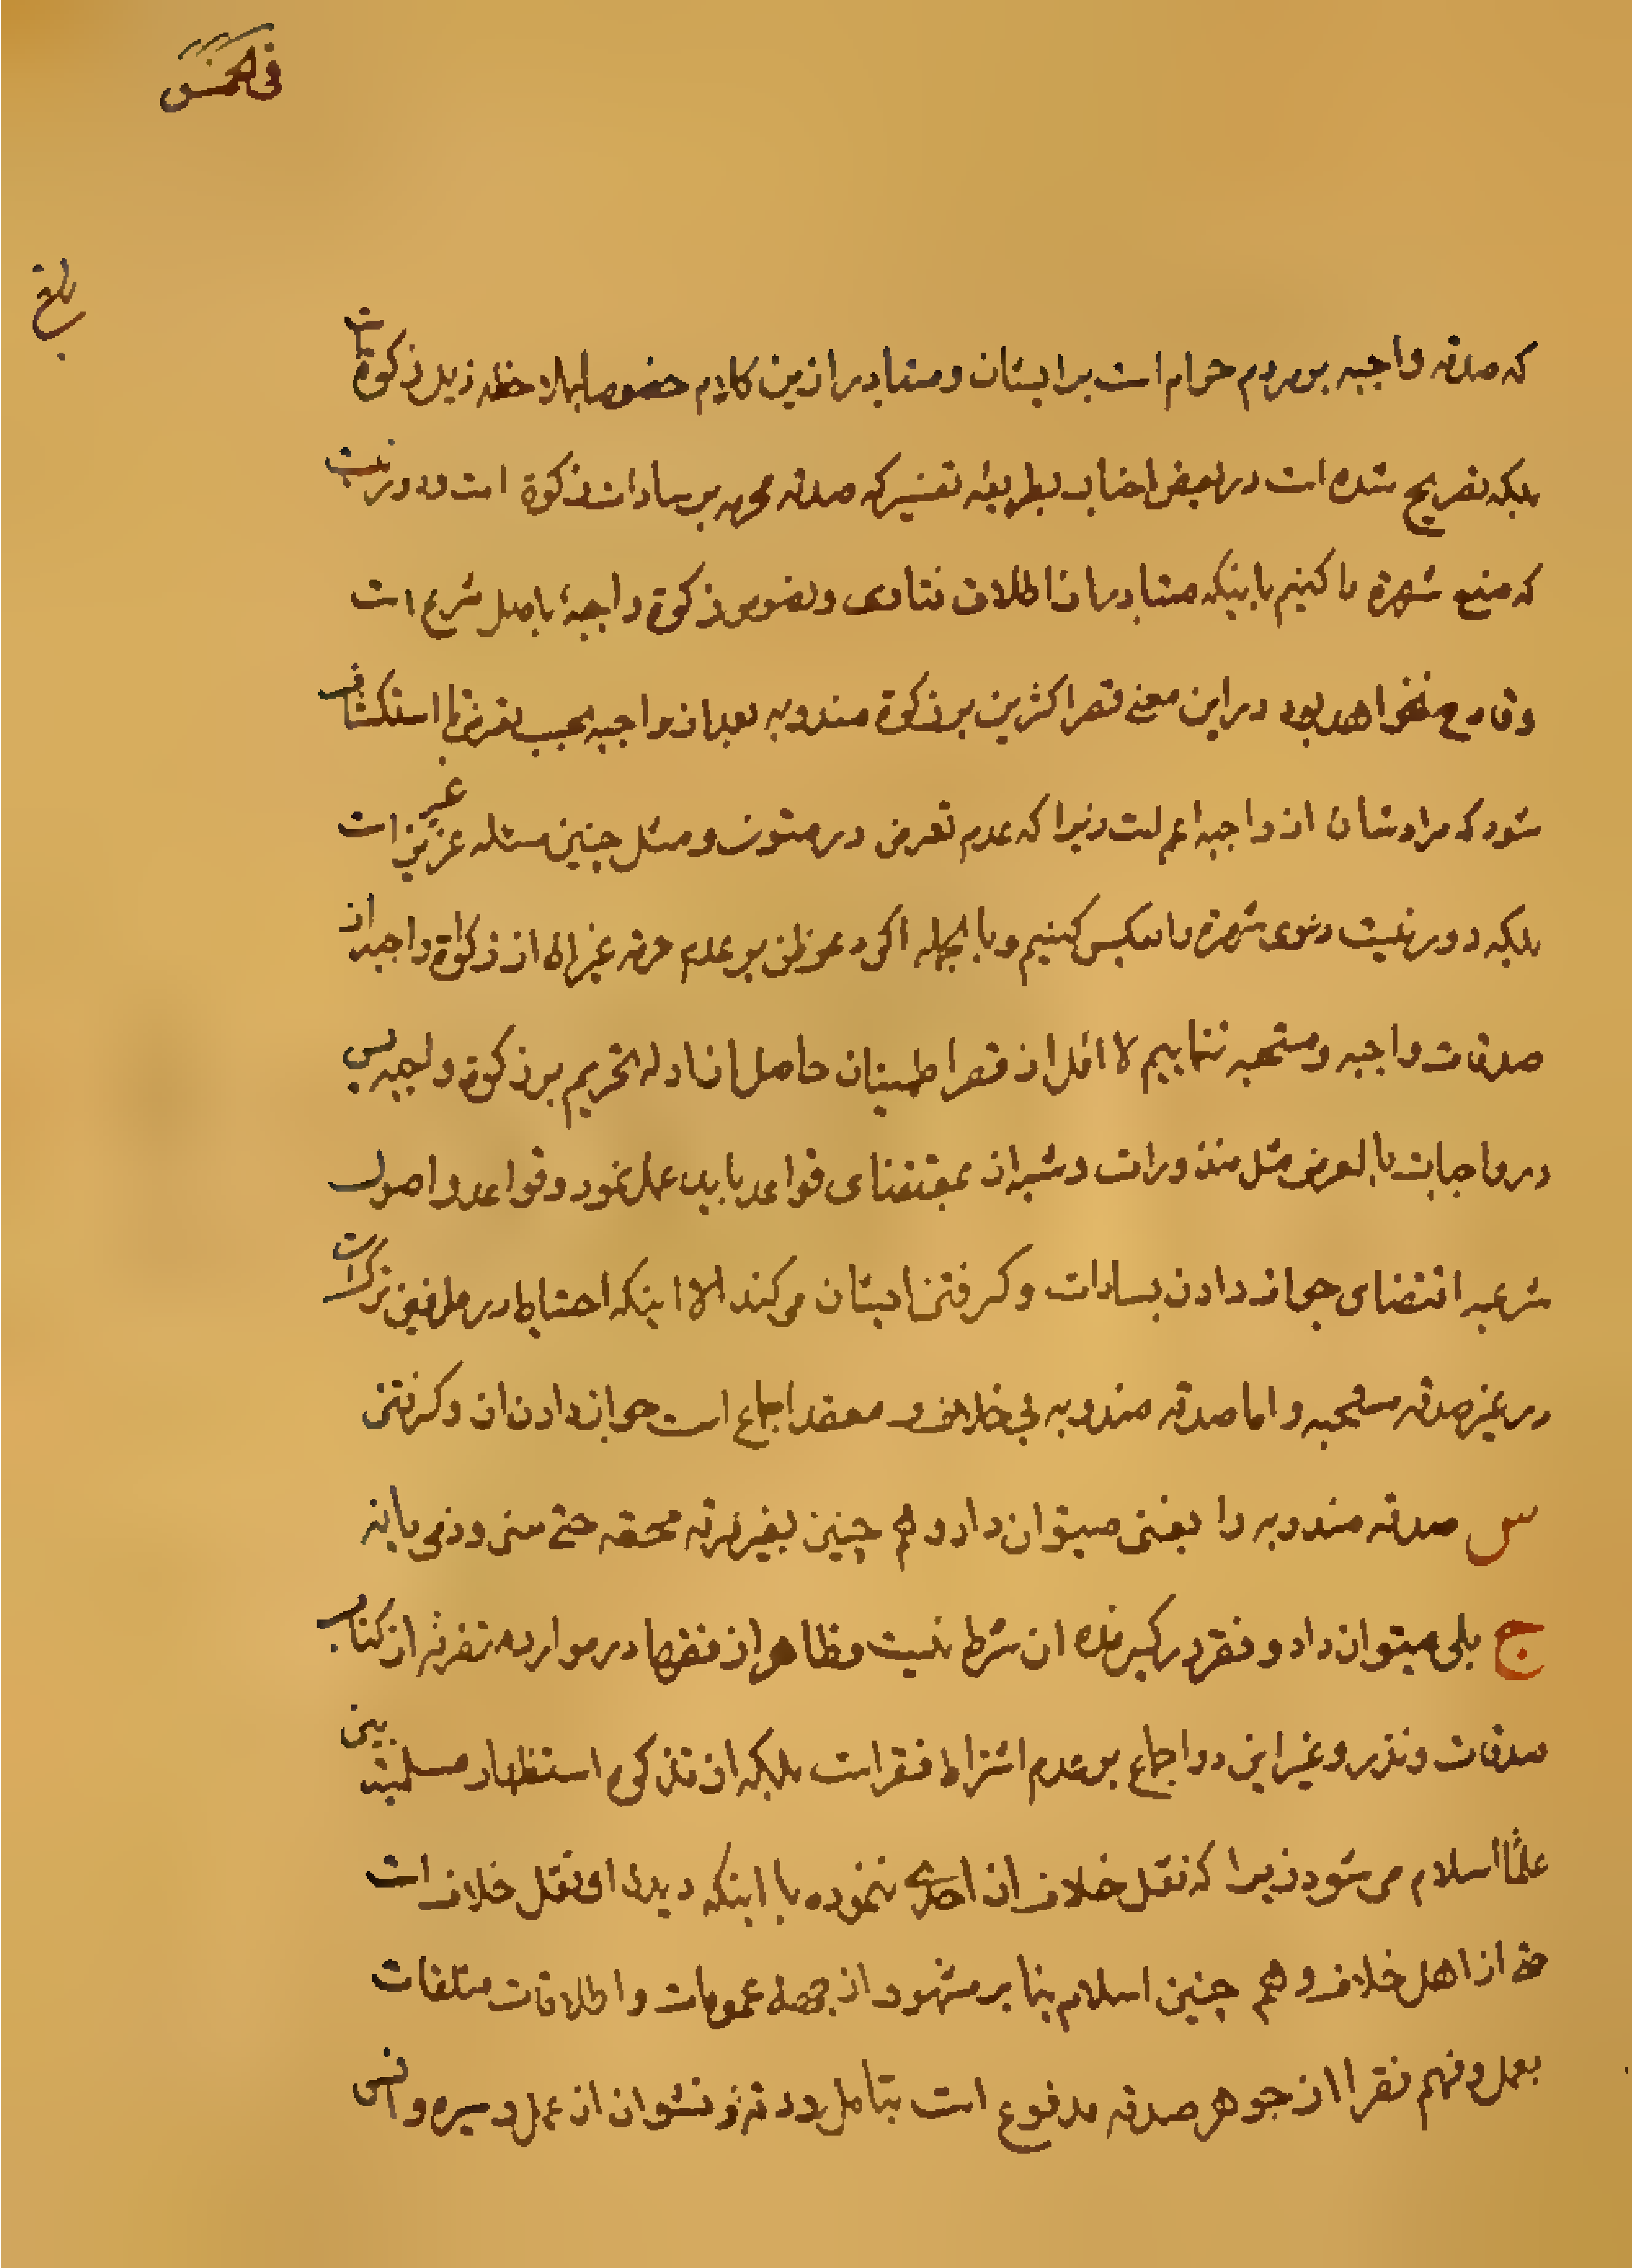 فی الخمس
بلغ
که صدقه واجبه بر مردم حرام است بر ایشان و متبادر ازین کلام خصوصا بملاحظه ذیل زکوة است
بلکه تصریح شده است در بعض اخبار بطریقه تفسیر که صدقه محرمه بر سادات زکوة است و دور نیست
که منع شهرة را کنیم باینکه متبادر از اطلاق فتاوی و نصوص زکوة واجبهٔ باصل شرع است
و قادح نخواهد بود در این معنی قصر اکثرین بر زکوة مندوبه بعد از واجبه بحسب تعرض تا استکشاف
شود که مرادشان از واجبه اعم است زیرا که عدم تعرض در متون و مثل چنین مسئله غیر عزیز است
بلکه دور نیست دعوی شهرة بالعکس کنیم و بالجمله اکر دعوظن بر عدم حرمة غیر از زکوة واجبه از
صدقات واجبه و مستحبه ننماییم لا اقل از قصر اطمینان حاصل از ادله تحریم بر زکوة واجبه پس
در واجبات بالعرض مثل منذورات و شبه ان بمقتضای قواعد باید عمل نمود و قواعد و اصول
شرعیه اقتضای جواز دادن بسادات و کرفتن ایشان می کند الا اینکه احتیاط در طرفین ترک است
در غیر صدقه مستحبه و اما صدقه مندوبه بی خلاف و معقد اجماع است جواز دادن ان و کرفتن
س صدقه مندوبه را بغنی میتوان داد و هم چنین بغیر فرقه محقه حتی سنی و ذمی یا نه
ج بلی میتوان داد و فقر در کیرنده ان شرط نیست و ظاهر از فقها در موارد متفرقه از کتاب
صدقات و نذر و غیر این دو اجماع بر عدم اشتراط فقر است بلکه از تذکره استظهار مسلمیت بین
علمآ اسلام می شود زیرا که نقل خلاف از احدی ننموده با اینکه دیدن او نقل خلاف است
حتی از اهل خلاف و هم چنین اسلام بنا بر مشهور از جهة عمومات و اطلاقات متلقات
بعمل و فهم فقرا از جوهر صدقه مدفوع است بتامل در عمل و سیره و